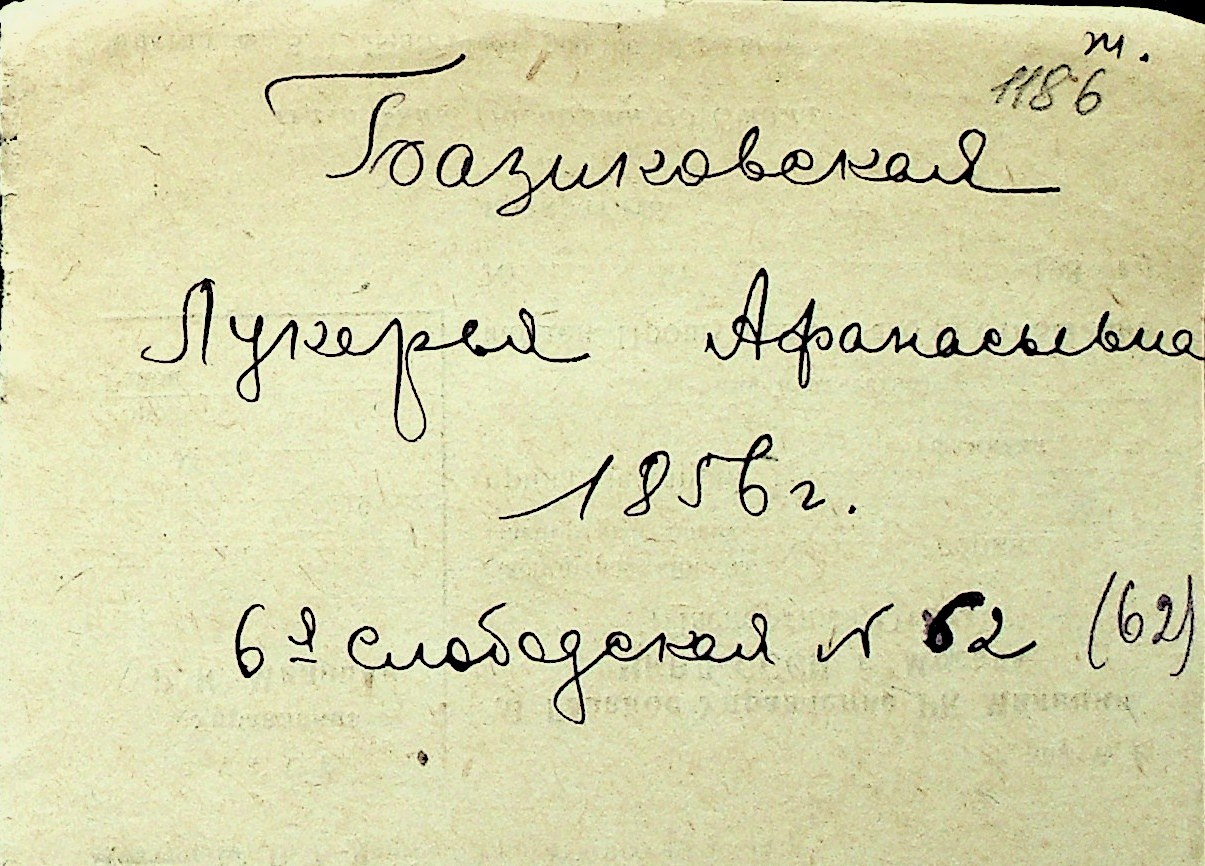 т.
1186
Базиковская
Лукерья Афанасьевна
1856 г.
6я слободская N 62 (62)